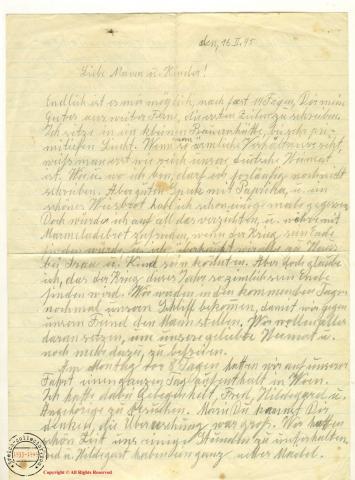 den, 16.II.45
Liebe Mama u. Kinder!
Endlich ist es mir möglich, nach fast 14 Tagen, Dir mein
Gutes aus weiter Ferne, die ersten Zeilen zu schreiben.
Ich sitze in einer kleinen Bauernhütte, bei
Licht. Wenn so ärmliche Verhältnisse sieht,
weiß man erst wie reich unser Deutsche Heimat
ist. Wo ich bin, darf ich vorläufig noch nicht
schreiben. Aber guten Speck mit Paprika, u. ein
schönes Weisbrot hab ich schon einige mal gegessen.
Doch würde ich auf all das verzichten, u. wäre mit
Marmeladebrot zufrieden, wenn der Krieg sein Ende
finden würde u. wir alle zu Haus
bei Frau u. Kind sein könnten. Aber doch glaube
ich, das der Krieg dieses Jahr so ziemlich sein Ende
finden wird. Wir werden in den kommenden Tagen
nochmal unsern Schliff bekommen, damit wir gegen
unsern Feind den Mann stellen. Wir wollen alles
daran setzen, um unsere geliebte Heimat u.
noch mehr dazu, zu befreien.
Am Montag vor 8 Tagen hatten wir auf unserer
Fahrt einen ganzen Tag Aufenthalt in Wien.
Ich hatte dabei Gelegenheit, Fred, Hildegard u.
Angehörige zu besuchen. Mama Du kannst Dir
denken, die Überraschung war groß. Wir hatten
schön Zeit uns einige Stunden zu unterhalten.
u. Hildegard haben ein ganz nettes Mädel.
Copyright © All Rights Reserved